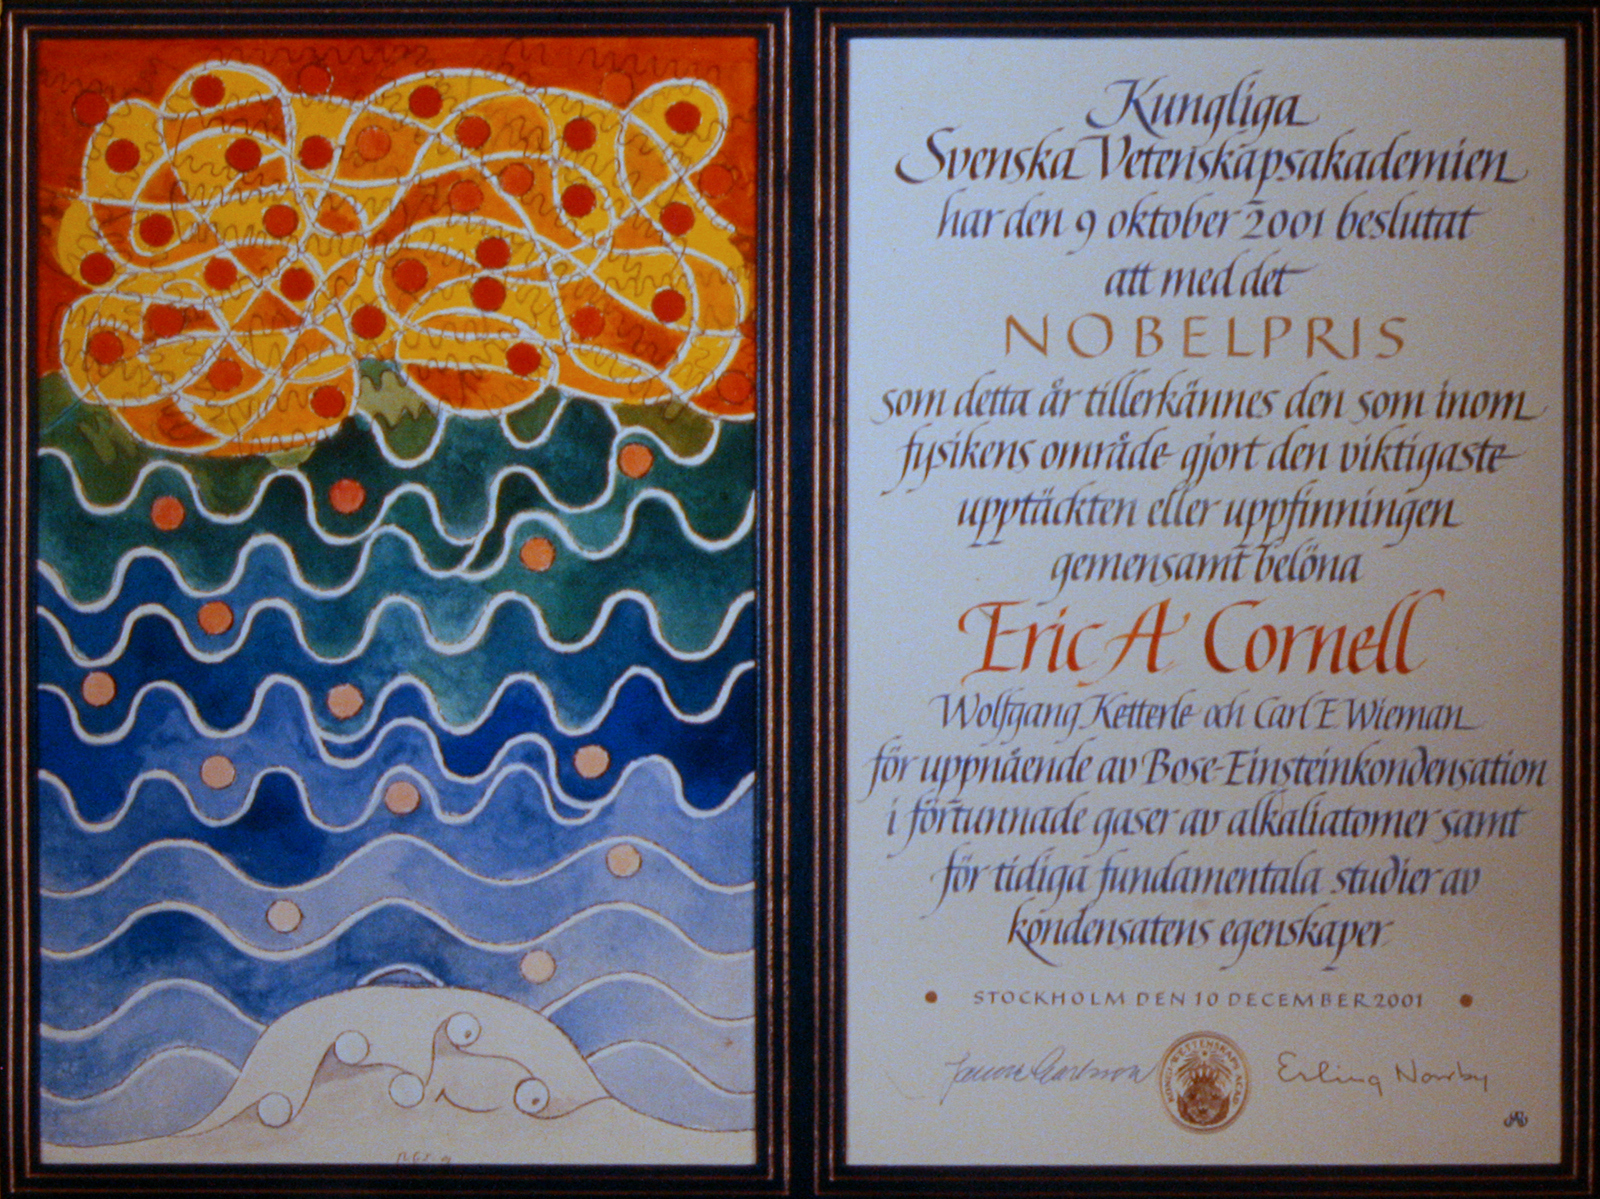 Kungliga
Svenska Vetenskapsakademien
har den 9 oktober 2001 beslutat
att med det
NOBELPRIS
som detta år tillerkännes den som inom
fysikens område gjort den viktigaste
upptäckten eller uppfinningen
gemensamt belöna
Eric A Cornell
Wolfgang Ketterle och Carl E Wieman
för uppnående av Bose-Einsteinkondensation
i förtunnade gaser av alkaliatomer samt
för tidiga fundamentala studier av
kondensatens egenskaper
• STOCKHOLM DEN 10 DECEMBER 2001 •
Erling Norrby